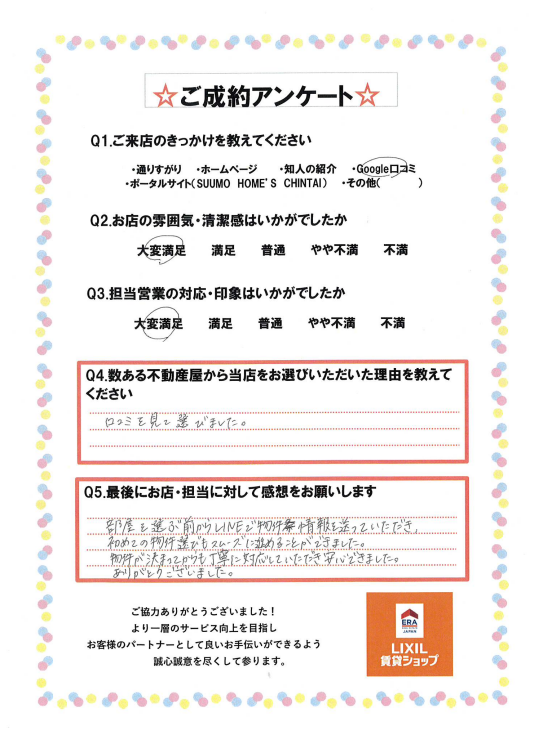 ☆ご成約アンケート☆
Q1.ご来店のきっかけを教えてください
・通りすがり ・ホームページ ・知人の紹介 ・Google口コミ
・ポータルサイト(SUUMO HOME'S CHINTAI) ・その他( )
Q2.お店の雰囲気・清潔感はいかがでしたか
大変満足 満足 普通 やや不満 不満
Q3.担当営業の対応・印象はいかがでしたか
大変満足 満足 普通 やや不満 不満
Q4.数ある不動産屋から当店をお選びいただいた理由を教えて
ください
口コミを見て選びました。
Q5.最後にお店・担当に対して感想をお願いします
部屋を選ぶ前からLINEで物件情報を送っていただき、
初めての物件選びもスムーズに進めることができました。
物件が決まってからも丁寧に対応していただき安心できました。
ありがとうございました。
ご協力ありがとうございました！
より一層のサービス向上を目指し
お客様のパートナーとして良いお手伝いができるよう
誠心誠意を尽くして参ります。
ERA
JAPAN
LIXIL
賃貸ショップ